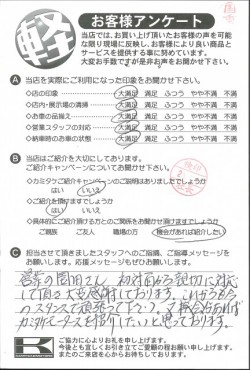 軽
お客様アンケート
当店では、お買い上げ頂いたお客様の声を可能
な限り現場に反映し、お客様により良い商品と
サービスを提供する事に努めています。
大変お手数ですが是非お声をお聞かせ下さい。
A 当店を実際にご利用になった印象をお聞かせ下さい。
◇店の印象 大満足 満足 ふつう やや不満 不満
◇店内・展示場の清掃 大満足 満足 ふつう やや不満 不満
◇お車の品揃え 大満足 満足 ふつう やや不満 不満
◇営業スタッフの対応 大満足 満足 ふつう やや不満 不満
◇納車時のお車の状態 大満足 満足 ふつう やや不満 不満
B 当店はご紹介を大切にしております。
ご紹介キャンペーンについてお聞かせ下さい。
◇カミタケご紹介キャンペーンのご説明はありましたでしょうか
はい いいえ
◇ご紹介を頂けますでしょうか
はい いいえ
◇具体的にご紹介頂ける方とのご関係をお聞かせ頂けますでしょうか
ご親族 ご友人 職場の方 機会があれば紹介したい
C 担当させて頂きましたスタッフへのご指摘、ご指導メッセージを
お願いします。応援メッセージもぜひお願いします。
営業の岡田さん 初対面から親切に対応
して頂き大変感謝しております。これからも
のスタンスで頑張って下さい。又機会があれば
カミタケモータースを借りしたいと思っております。
K
ご協力に心よりお礼を申し上げます。
今後とも宜しくお引き立てご愛顧の程お願い申し上げます。
またのご来店を心からお待ちしております。